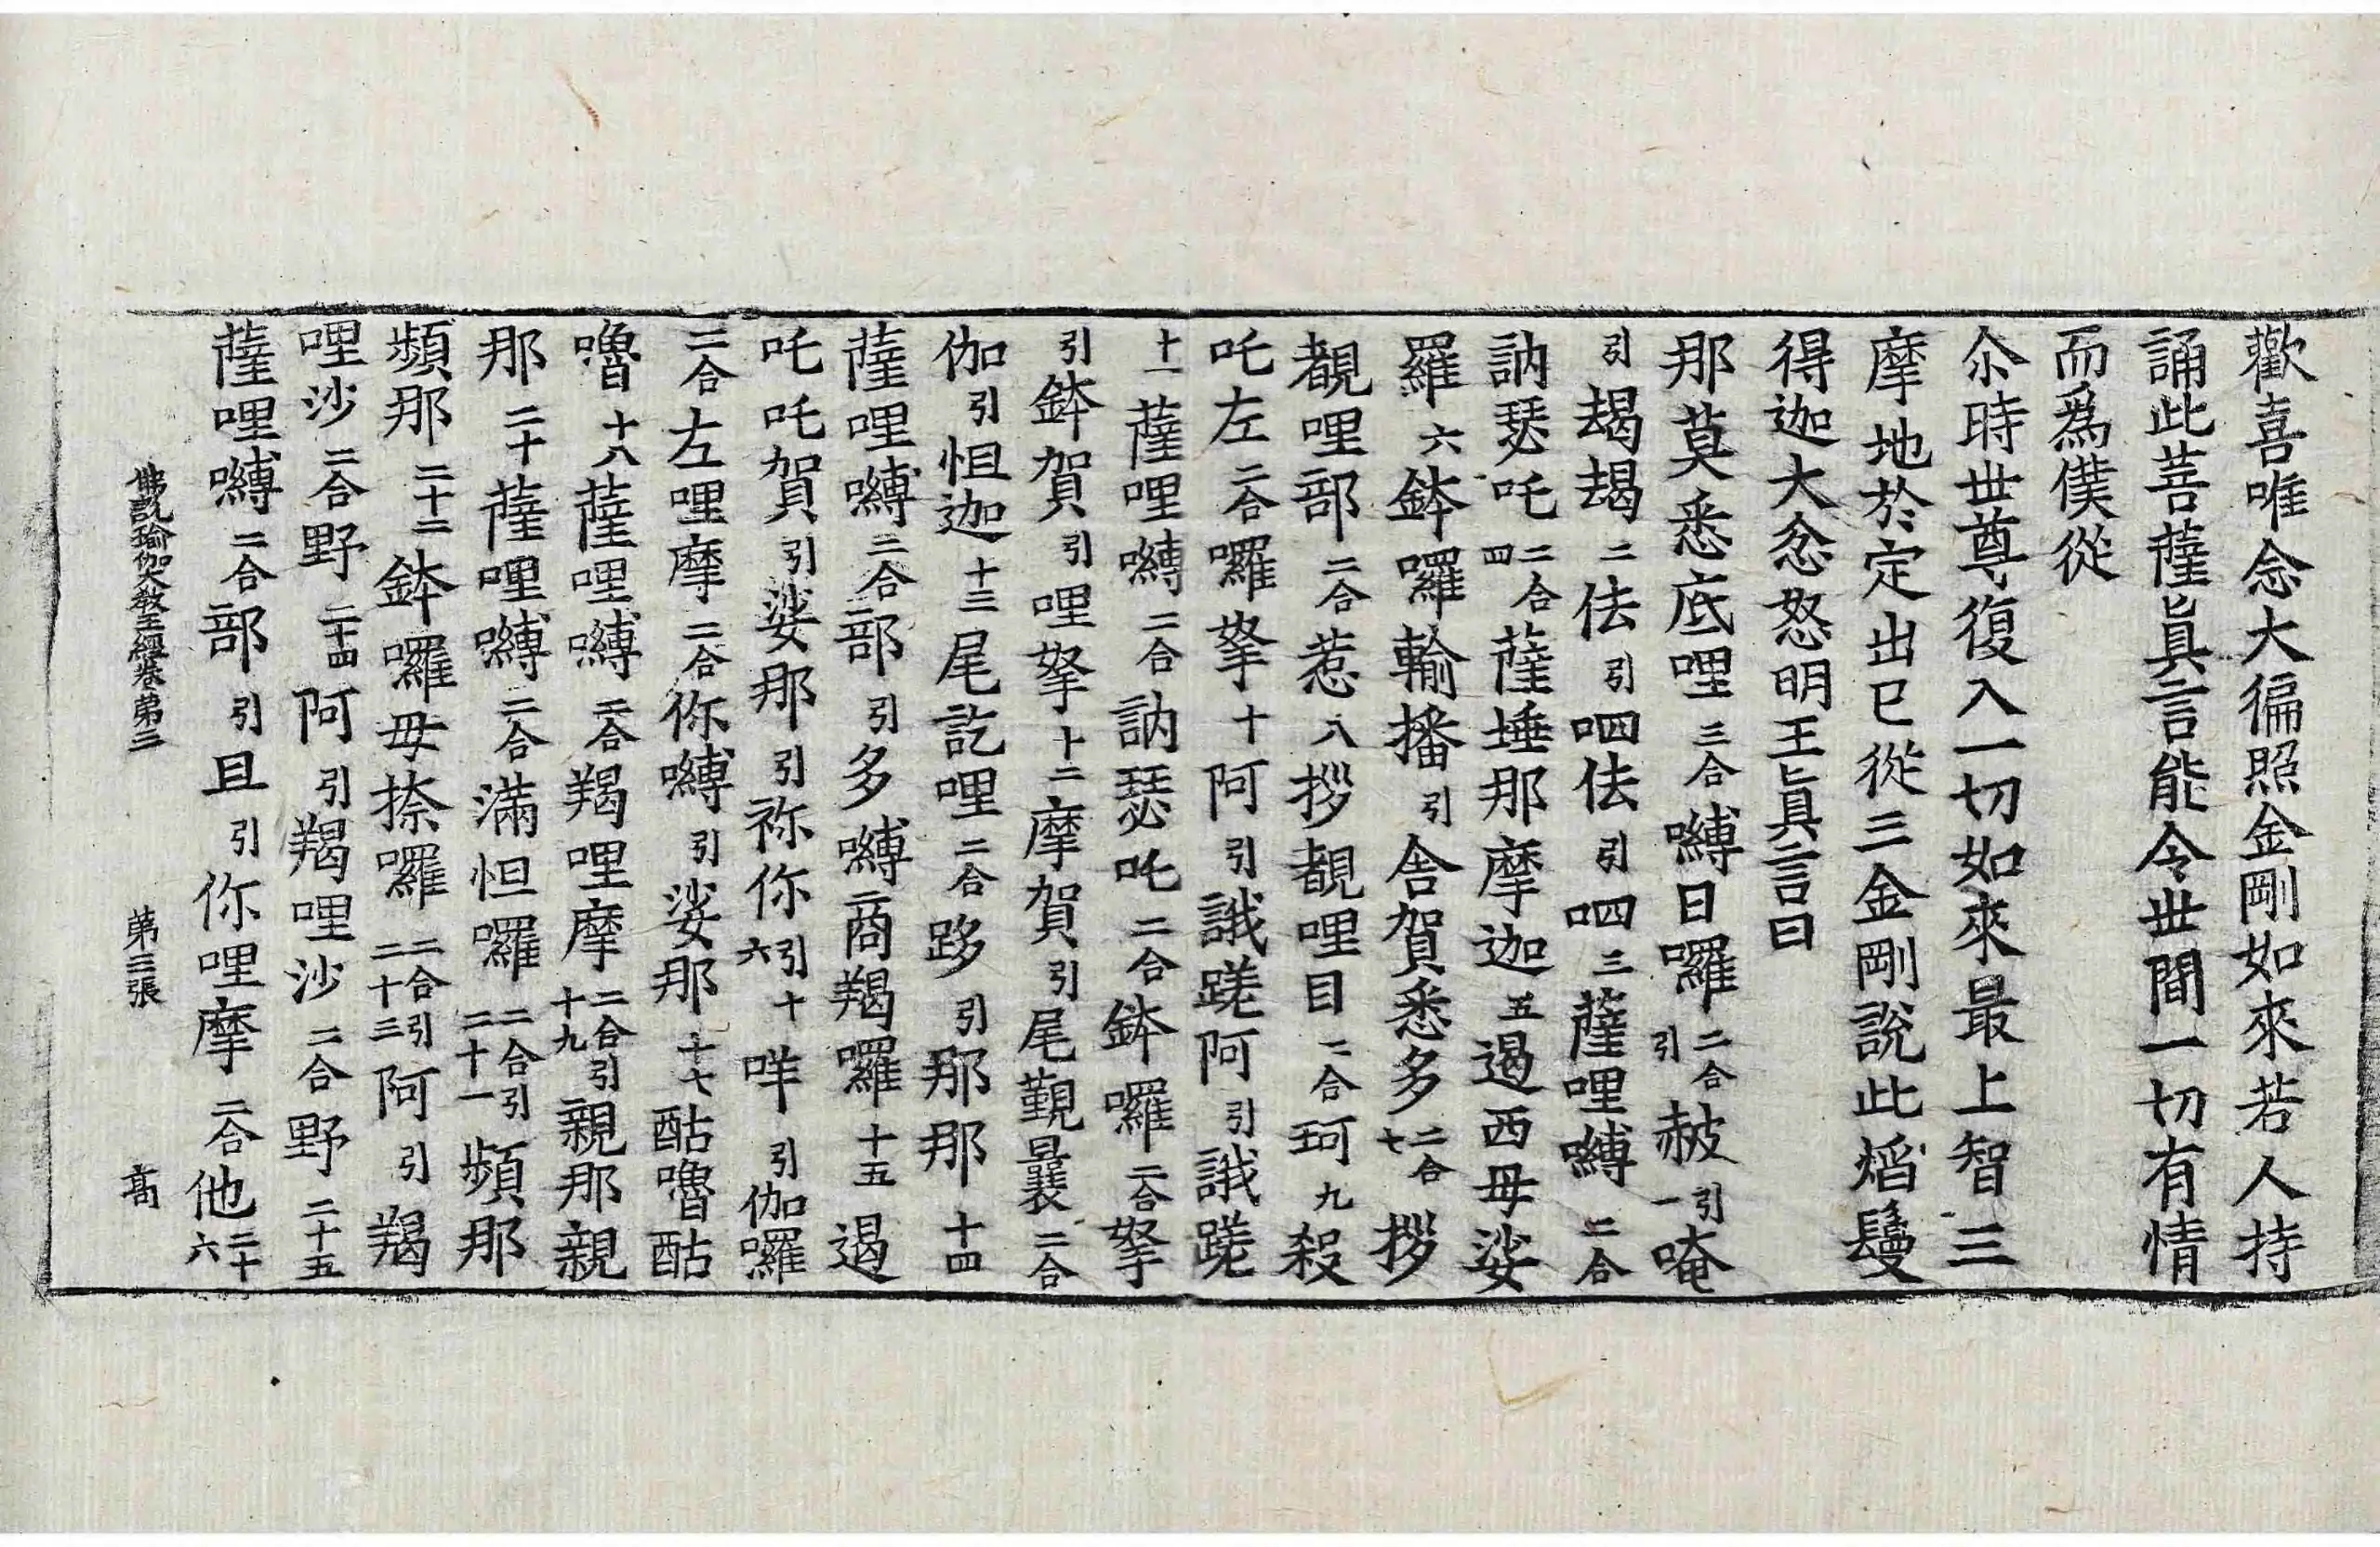 歡喜唯念大徧照金剛如來若人持
誦此菩薩眞言能令世間一切有情
而爲僕從
尒時世尊復入一切如來最上智三
摩地於定出已從三金剛說此焰鬘
得迦大忿怒明王眞言曰
那莫悉底哩三合嚩日囉二合引赦引一唵
引朅朅二佉引呬佉引呬三薩哩嚩二合
訥瑟吒二合四薩埵那摩迦五遏西母娑
羅六鉢囉輸播引舍賀悉多二合七拶
覩哩部二合惹八拶覩哩目二合珂九殺
吒左二合囉拏十阿引誐蹉阿引誐蹉
十一薩哩嚩二合訥瑟吒二合鉢囉二合拏
引鉢賀引哩拏十二摩賀引尾覲曩二合
伽引怛迦十三尾訖哩二合跢引那那十四
薩哩嚩二合部引多嚩商羯囉十五遏
吒吒賀引娑那引祢你引十六咩引伽囉
二合左哩摩二合你嚩引娑那十七酤嚕酤
嚕十八薩哩嚩二合羯哩摩二合引十九親那親
那二十薩哩嚩二合滿怛囉二合引二十一頻那
頻那二十二鉢囉母捺囉二合引二十三阿引羯
哩沙二合野二十四阿引羯哩沙二合野二十五
薩哩嚩二合部引且引你哩摩二合他二十六
佛說瑜伽大教王經卷第二 第三張 髙